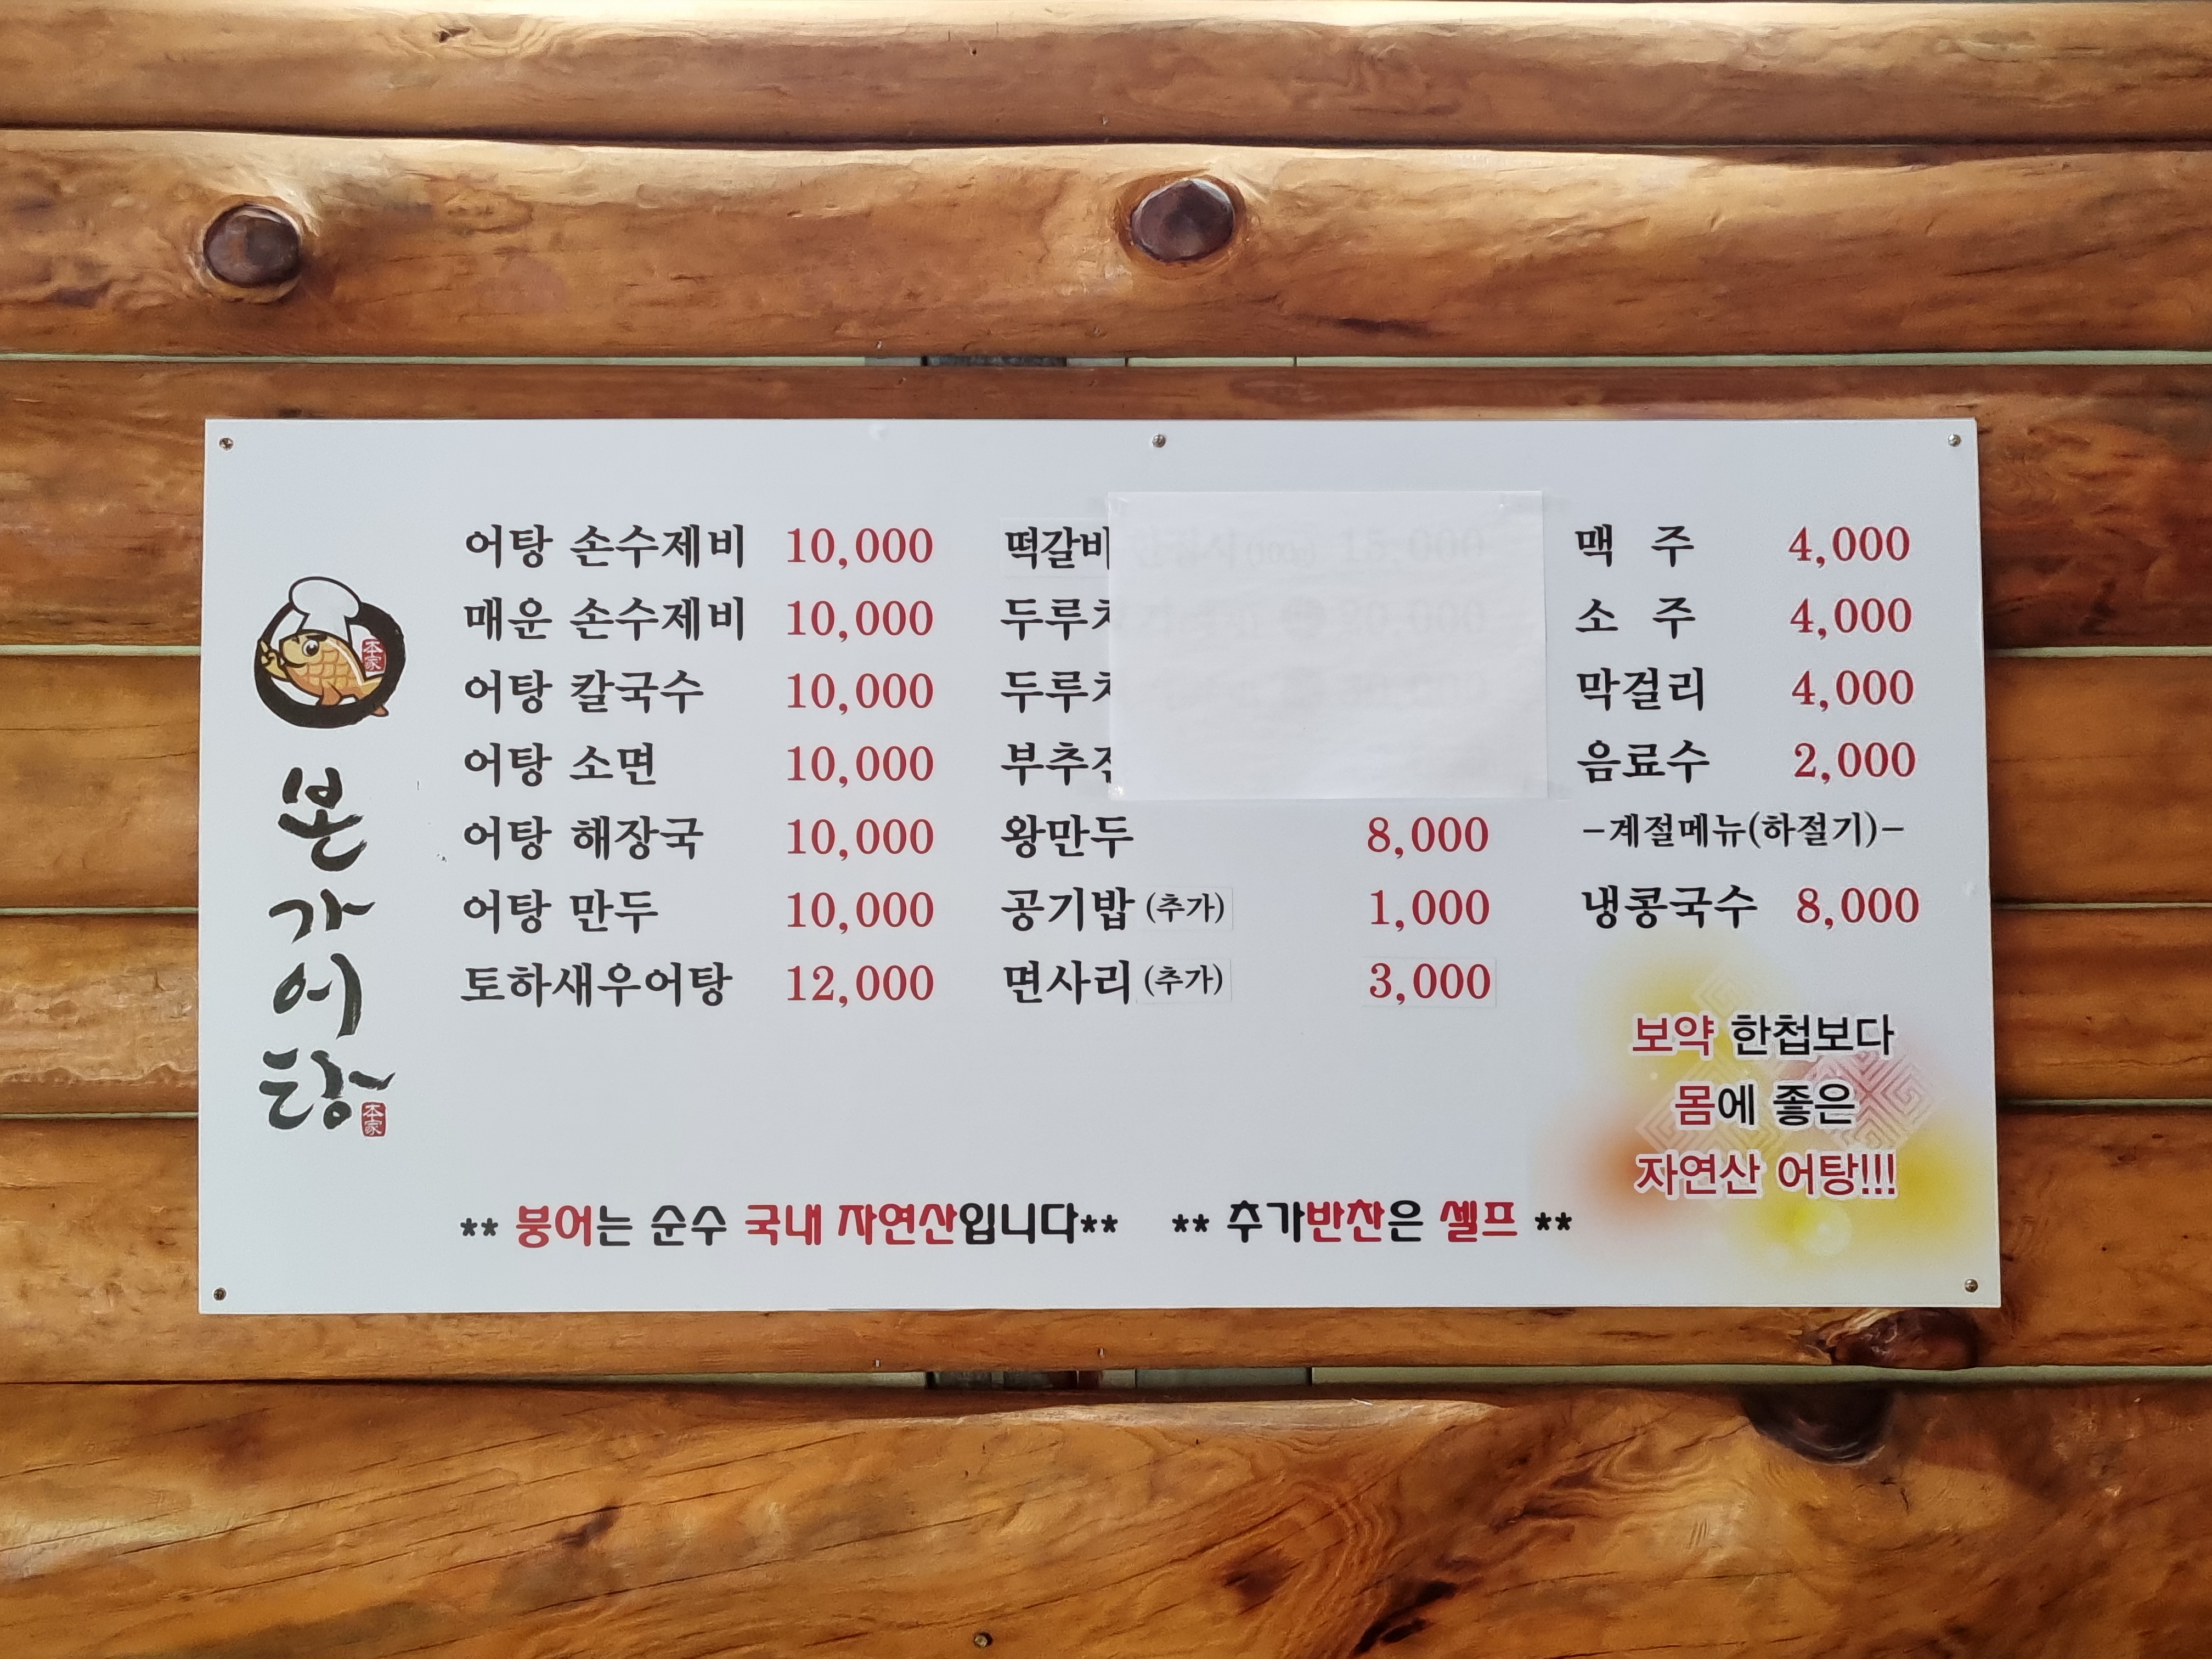 본가어탕
本家
本家
어탕 손수제비 10,000
매운 손수제비 10,000
어탕 칼국수 10,000
어탕 소면 10,000
어탕 해장국 10,000
어탕 만두 10,000
토하새우어탕 12,000
떡갈비
왕만두 8,000
공기밥 (추가) 1,000
면사리 (추가) 3,000
맥 주 4,000
소 주 4,000
막걸리 4,000
음료수 2,000
-계절메뉴(하절기)-
냉콩국수 8,000
보약 한첩보다
몸에 좋은
자연산 어탕!!!
** 붕어는 순수 국내 자연산입니다** ** 추가반찬은 셀프 **